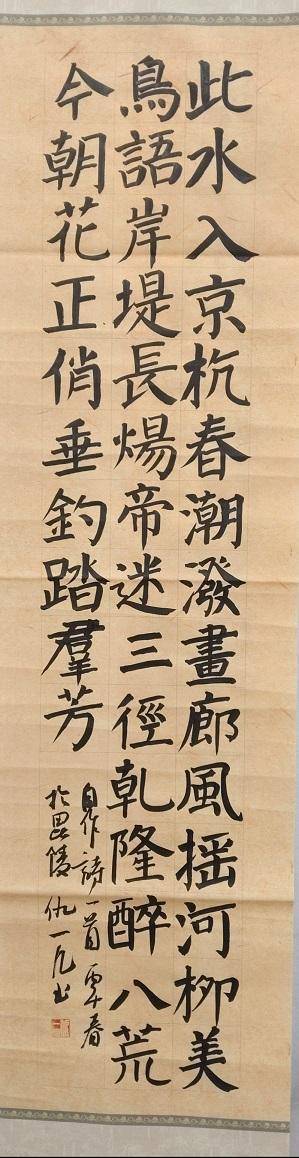 此水入京杭春潮潑畫廊風揺河柳美
鳥語岸堤長煬帝迷三徑乾隆醉八荒
今朝花正俏垂釣踏羣芳
自作詩一首 春
於毘陵 仇一凡书